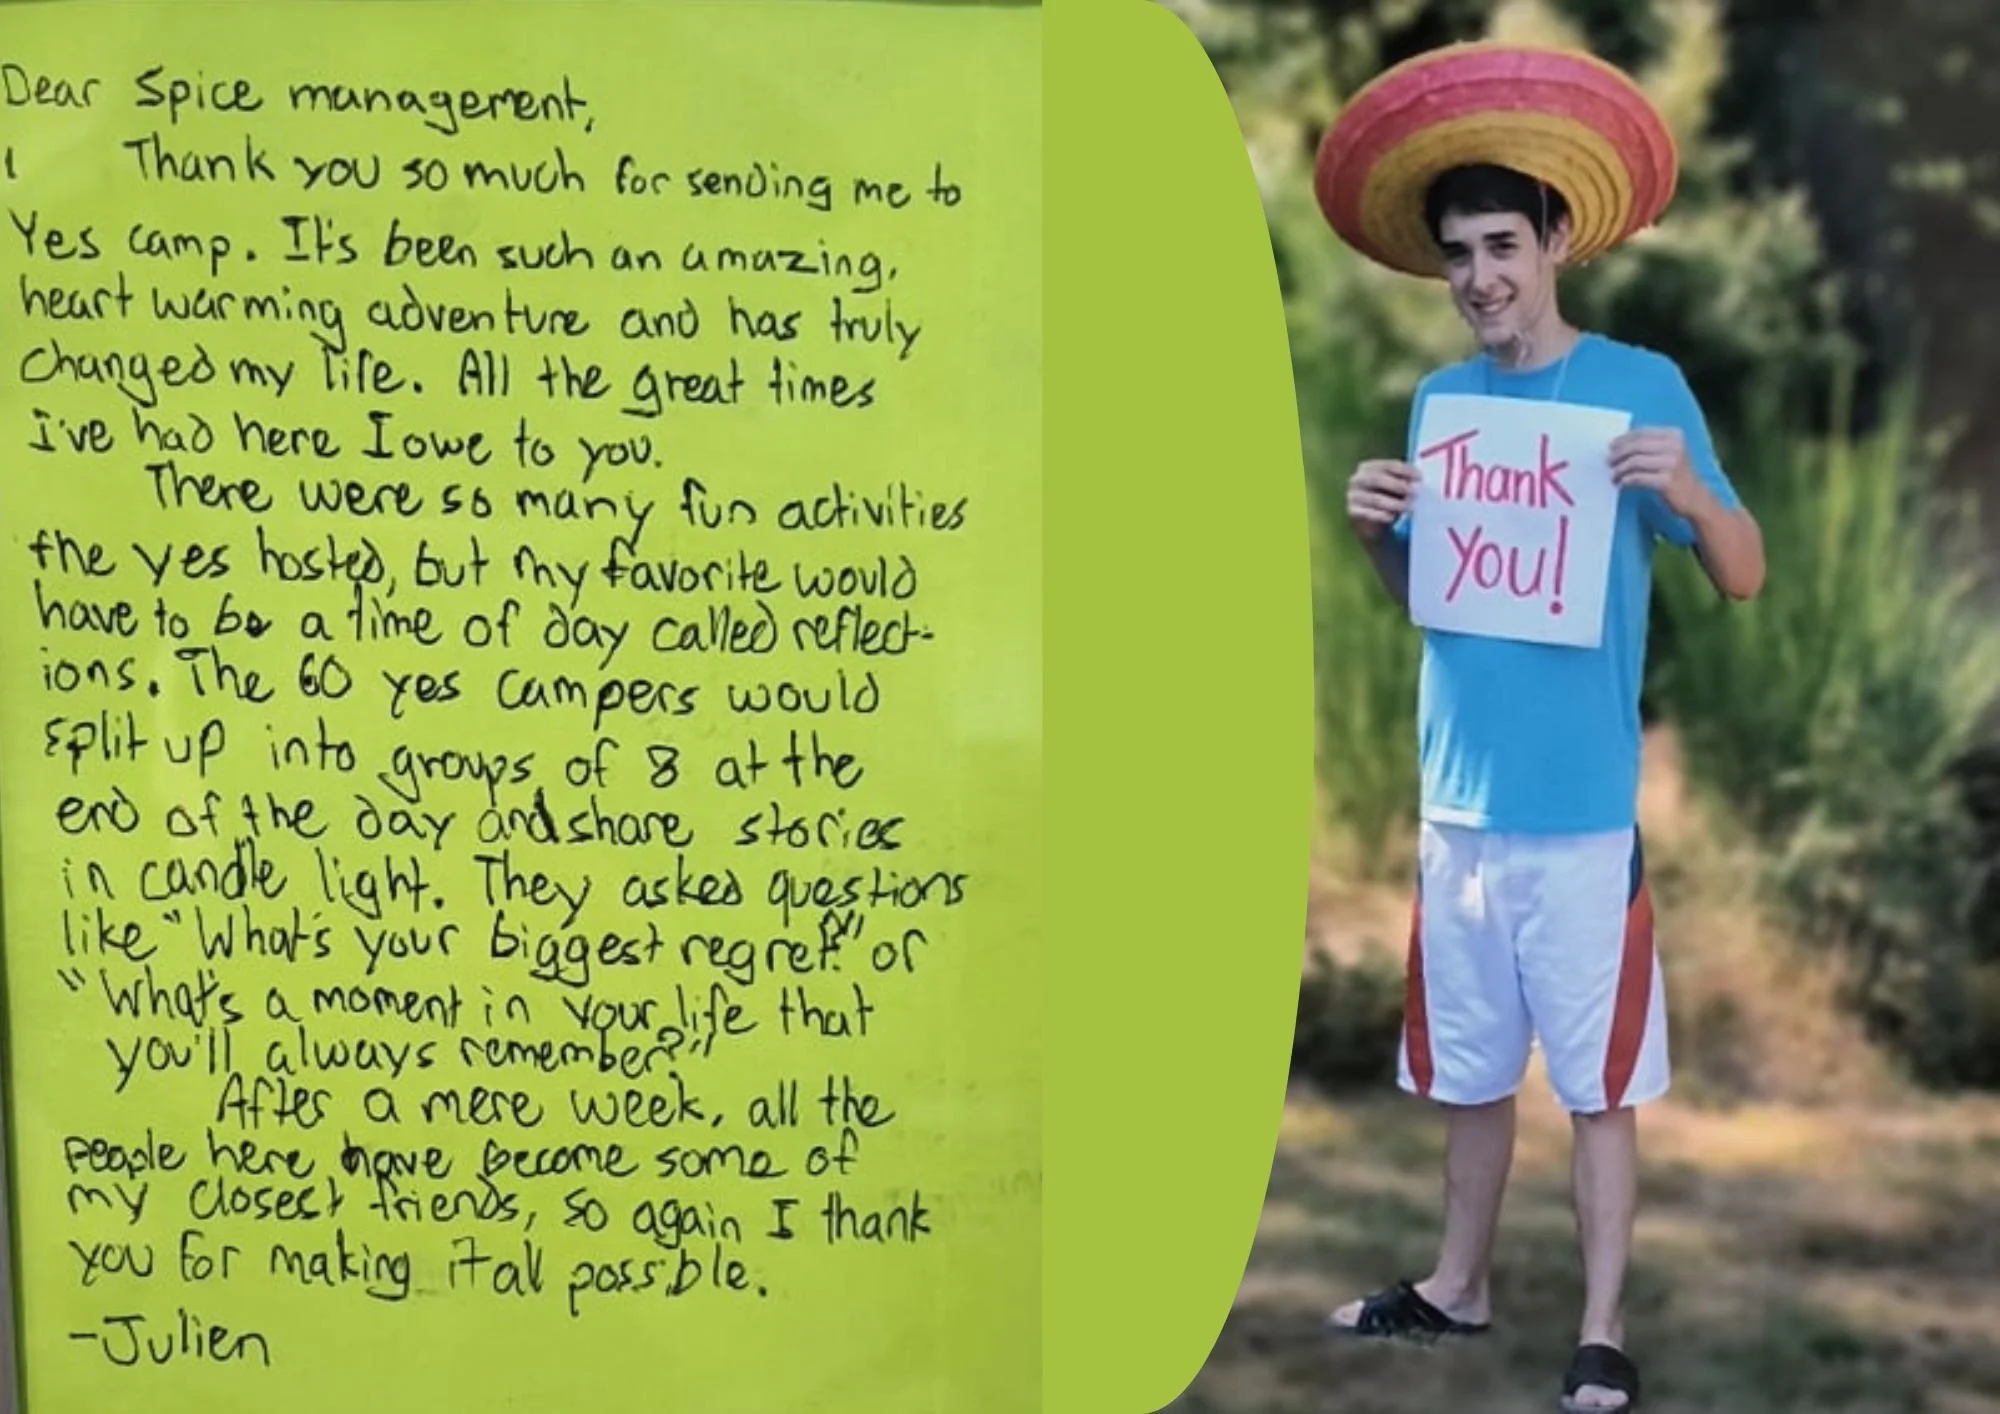 Dear Spice management,
Thank you so much for sending me to
Yes camp. It's been such an amazing,
heart warming adventure and has truly
changed my life. All the great times
I've had here I owe to you.
There were so many fun activities
the yes hosted, but my favorite would
have to be a time of day called reflect-
ions. The 60 yes campers would
split up into groups of 8 at the
end of the day and share stories
in candle light. They asked questions
like "What's your biggest regret?" or
"What's a moment in your life that
you'll always remember?"
After a mere week, all the
people here have become some of
my closest friends, so again I thank
you for making it all possible.
-Julien
Thank
you!